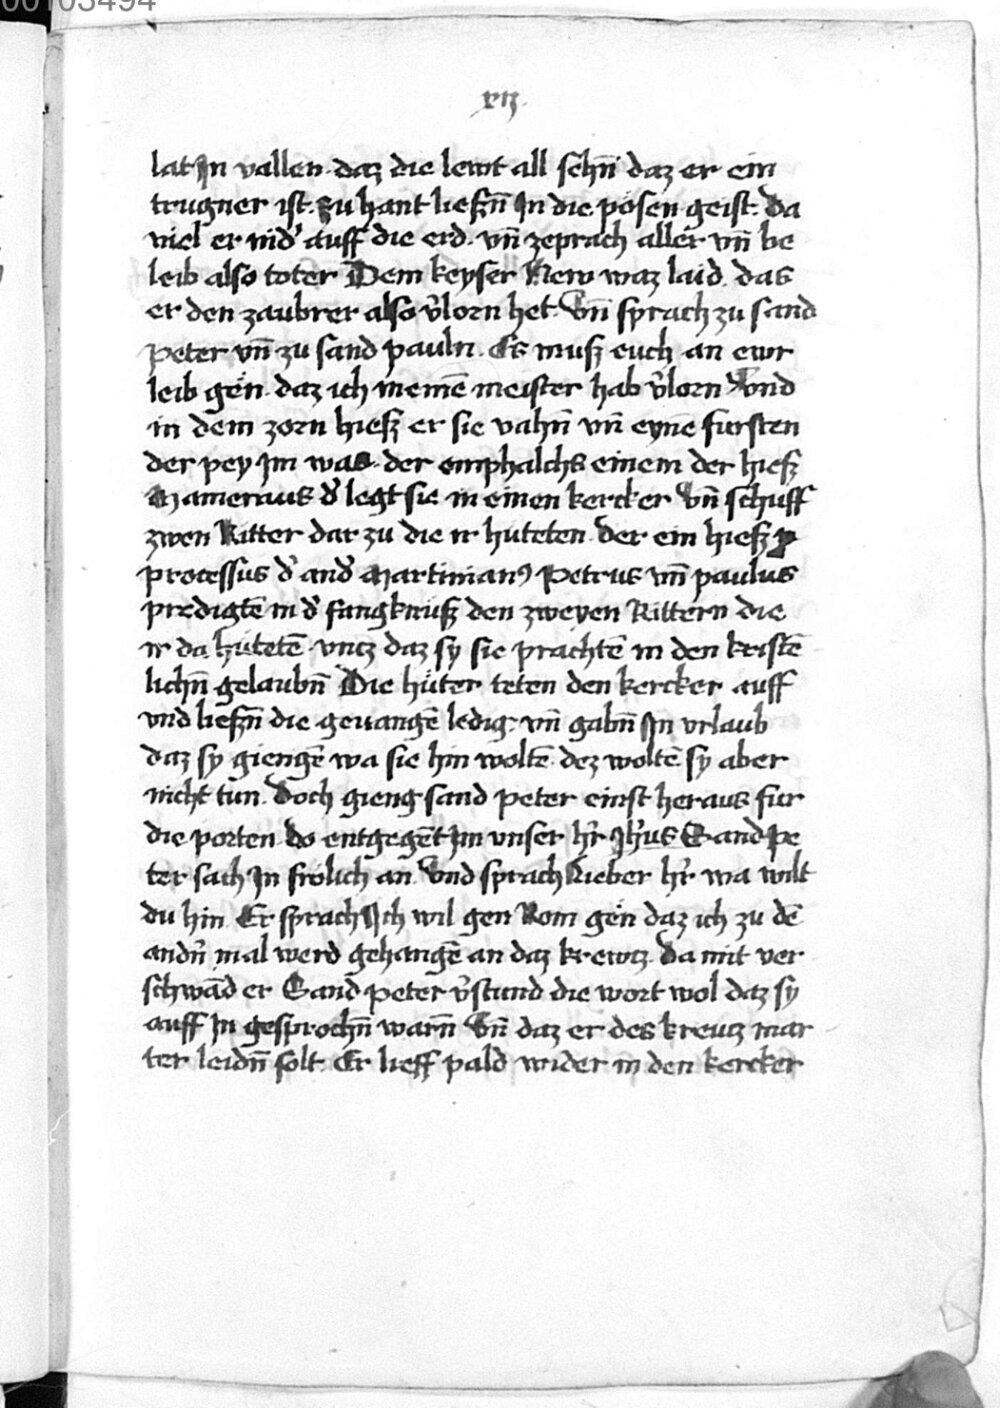 00103494
xij
lat Jn vallen daz die lewt all sehn̄ daz er ein
trugner ist. zu hant liefzn̄ Jn die pösen geist. da
viel er nid' auff die erd. vn̄ zeprach aller vn̄ be
leib also toter Dem keyser Nero waz laid das
er den zaubrer also v'lorn het. Vn̄ sprach zu sand
peter vn̄ zu sand pauln. Es musz euch an ewr
leib gen daz ich meinē meister hab v'lorn Vnd
in dem zorn hiesz er sie vahn̄ vn̄ eynē fursten
der pey Jm was. der emphalchs einem der hiesz
Mamerteus d' legt sie in einen kercker Vn̄ schuff
zwen Ritter dar zu die ir huteten. der ein hiesz p
processus d' and' Martinian9 Petrus vn̄ paulus
predigtē in d' fangknüsz den zweyen Rittern die
ir da hütetē vntz daz sy sie prachtē in den kristē
lichn̄ gelaubn̄ Die hüter teten den kercker auff
vnd liefzn̄ die geuangē ledig. vn̄ gabn̄ Jn vrlaub
daz sy giengē wa sie hin woltē. dez woltē sy aber
nicht tun. Doch gieng sand peter einst heraus fur
die porten do entgegēt Jm vnser h'r Jh'us Sand pe
ter sach Jn frölich an Vnd sprach Lieber h'r wa wilt
du hin Er sprach Jch wil gen Rom gen daz ich zu dē
andn̄ mal werd gehangē an daz krewtz. da mit ver
schwād er Sand peter v'stund die wort wol daz sy
auff Jn gesprochn̄ warn̄ Vn̄ daz er des kreutz mar
ter leidn̄ solt. Er lieff pald wider in den kercker